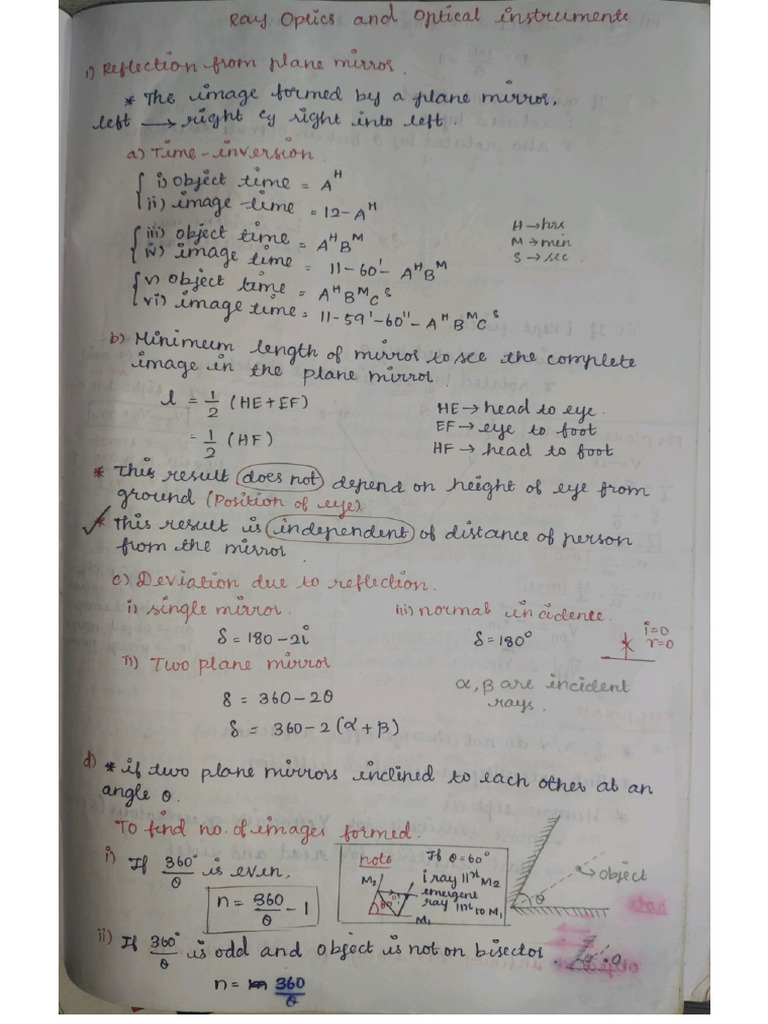 Ray Optics and Optical instruments
1) Reflection from plane mirror.
* The image formed by a plane mirror,
left → right & right into left.
a) Time-inversion
i) object time = A^H
ii) image time = 12-A^H
iii) object time = A^H B^M
iv) image time = 11-60'- A^H B^M
v) object time = A^H B^M C^S
vi) image time = 11-59'-60''-A^H B^M C^S
H→hrs
M→min
S→sec.
b) Minimum length of mirror to see the complete
image in the plane mirror.
l = 1/2 (HE+EF)
= 1/2 (HF)
HE→head to eye.
EF→ eye to foot
HF→ head to foot
* This result does not depend on height of eye from
ground (Position of eye)
* This result is independent of distance of person
from the mirror
c) Deviation due to reflection.
i) single mirror.
δ = 180-2i
iii) normal incidence.
δ=180°
i=0
r=0
ii) Two plane mirror
δ = 360-2θ
δ = 360-2(α+β)
α,β are incident
rays.
d) * if two plane mirrors inclined to each other at an
angle θ.
To find no. of images formed.
i) If 360°/θ is even,
n = 360/θ - 1
note
If θ=60°
i ray 11^n M2
emergent
ray 11^n to M1
M2
60°
M1
θ
object
note
ii) If 360°/θ is odd and object is not on bisector.
n = 360/θ